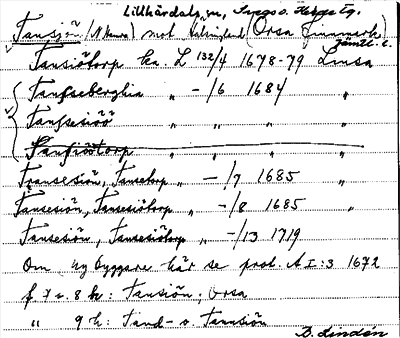 Lillhärdals sn, Svegs o. Hede tg.
Tansjön (N hamra) mot Hälsingland (Orsa Finnmark)
Jämtl. l.
Tansiötorp ha. L 132/4 1678-79 Linsa
Tansseberglia " - /6 1684 "
Tanssesiöö " " " "
Tansiöstorp " " "
Transesiön, Tansetorp " - /7 1685 "
Tansesiön, Tansesiötorp " - /8 1685 "
Tansesön, Tansesiötorp " - /13 1719
Om nybyggare här se prot. A I:3 1672
f 7 o. 8 h: Tansiön; Orsa
" 9 h: Tand- o. Tannsiön
B. Lindén